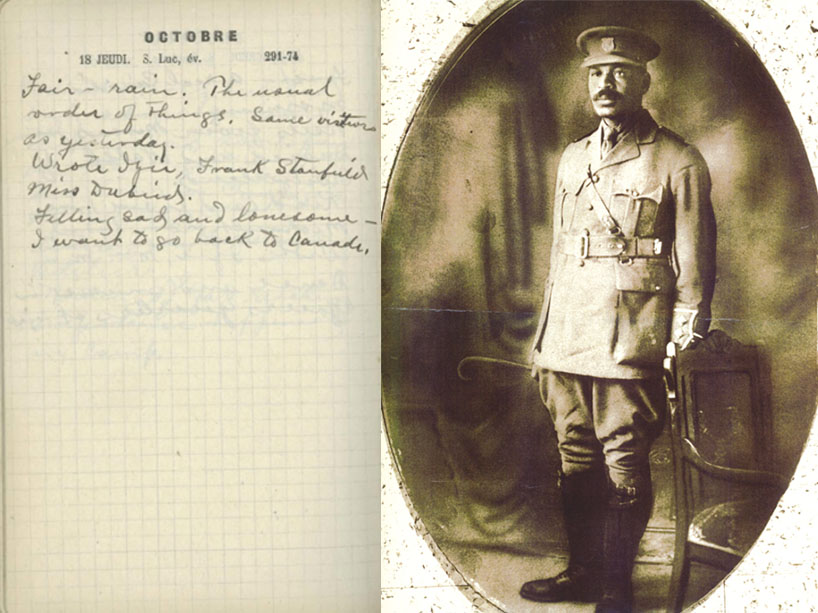 OCTOBRE
18 JEUDI. S. Luc, év. 291-74
Fair – rain. The usual
order of things. Same visitors
as yesterday.
Wrote Izie, Frank Stanfield
Miss Dubird.
Filling sad and lonesome –
I want to go back to Canada.